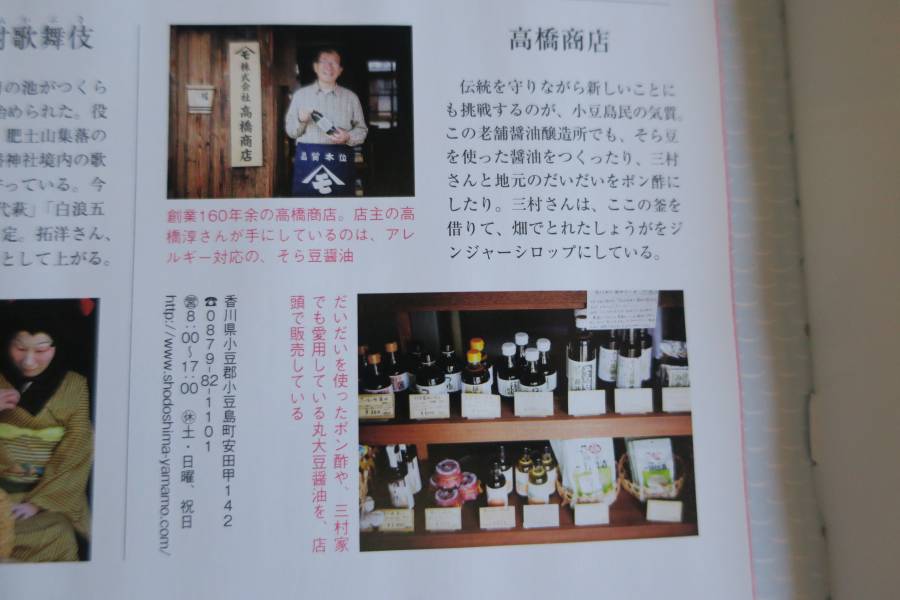 村歌舞伎
の池がつくら
始められた。役
肥土山集落の
神社境内の歌
っている。今
代萩」「白浪五
定。拓洋さん、
として上がる。
株式会社 高橋商店
品質本位
創業160年余の高橋商店。店主の高
橋淳さんが手にしているのは、アレ
ルギー対応の、そら豆醤油
高橋商店
伝統を守りながら新しいことに
も挑戦するのが、小豆島民の気質。
この老舗醤油醸造所でも、そら豆
を使った醤油をつくったり、三村
さんと地元のだいだいをポン酢に
したり。三村さんは、ここの釜を
借りて、畑でとれたしょうがをジ
ンジャーシロップにしている。
だいだいを使ったポン酢や、三村家
でも愛用している丸大豆醤油を、店
頭で販売している
香川県小豆郡小豆島町安田甲142
☎0879-82-1101
㊡8:00〜17:00 ㊡土・日曜、祝日
http://www.shodoshima-yamamo.com/